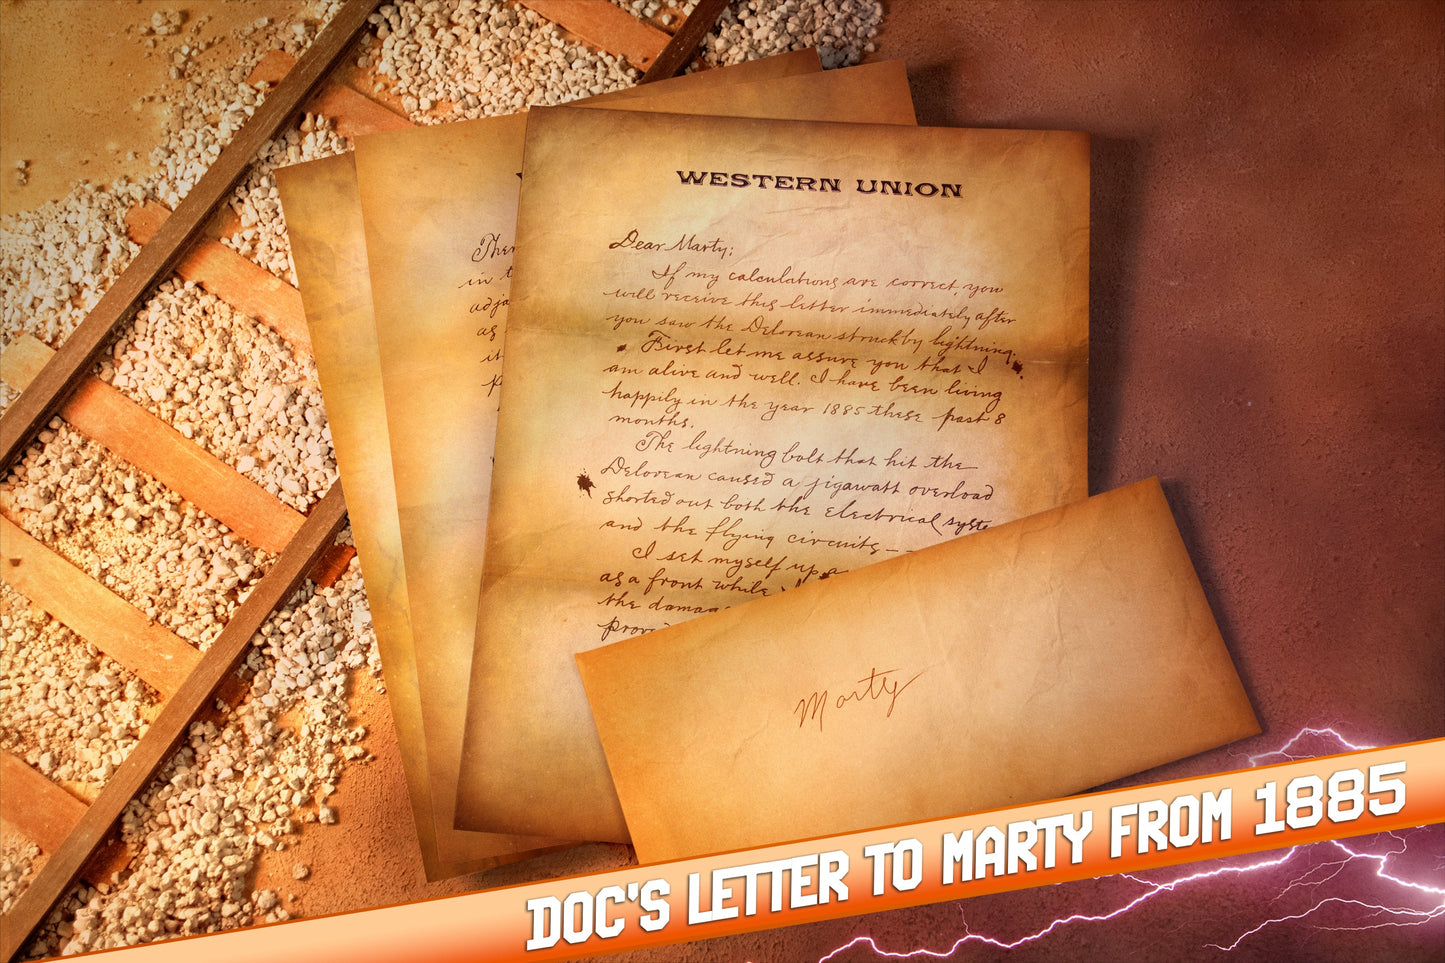 WESTERN UNION
Dear Marty;
If my calculations are correct, you
will receive this letter immediately after
you saw the Delorean struck by lightning.
First let me assure you that I
am alive and well. I have been living
happily in the year 1885 these past 8
months.
The lightning bolt that hit the
Delorean caused a jigawatt overload
shorted out both the electrical syste
and the flying circuits--
I set myself up a
as a front while
the damag
provi
Ther
in t
adja
as
it
p
Marty
DOC'S LETTER TO MARTY FROM 1885